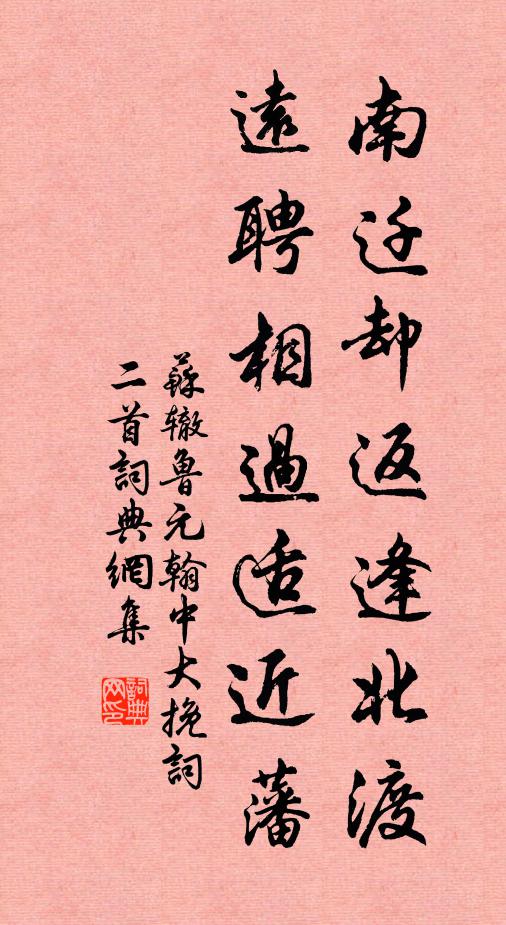 南迁却返逢北渡
遠聘相過适近藩
蘇辙魯元翰中大挽詞
二首詞典網集
詞典
网印